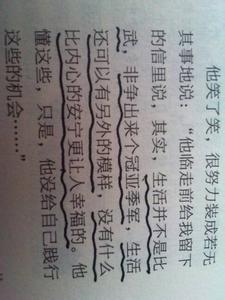 他笑了笑，很努力装成若无
其事地说：“他临走前给我留下
的信里说，其实，生活并不是比
武，非争出来个冠亚季军，生活
还可以有另外的模样，没有什么
比内心的安宁更让人幸福的。他
懂这些，只是，他没给自己践行
这些的机会……”